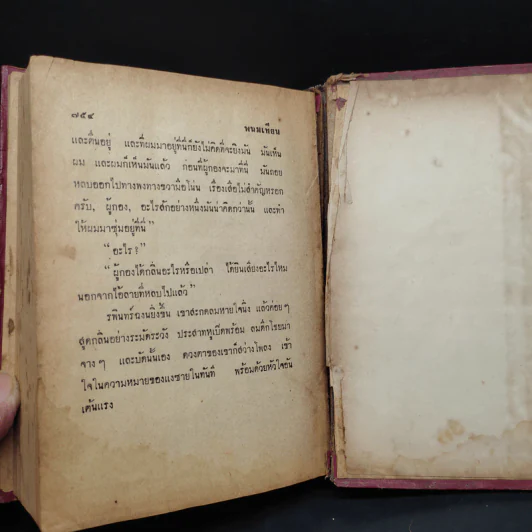 ๗๕๔
พนมเทียน
และตื่นอยู่ และที่ผมมาอยู่ที่นี่ก็ยังไม่คิดที่จะยิงมัน มันเห็น
ผม และผมก็เห็นมันแล้ว ก่อนที่ผู้กองจะมาที่นี่ มันถอย
หลบออกไปทางพงทางขวามือโน่น เรื่องเสือไม่สำคัญหรอก
ครับ, ผู้กอง, อะไรสักอย่างหนึ่งมันน่าคิดกว่านั้น และทำ
ให้ผมมาซุ่มอยู่ที่นี่”
“อะไร?”
“ผู้กองได้กลิ่นอะไรหรือเปล่า ได้ยินเสียงอะไรไหม
นอกจากไอ้ลายที่หลบไปแล้ว”
รพินทร์ฉงนยิ่งขึ้น เขาสะกดลมหายใจนิ่ง แล้วค่อยๆ
สูดกลิ่นอย่างระมัดระวัง ประสาทหูเบิ่งพร้อม ลมดึกโชยมา
จางๆ และบัดนั้นเอง ดวงตาของเขาก็สว่างโพลง เข้า
ใจในความหมายของแงซายในทันที พร้อมด้วยหัวใจอัน
เต้นแรง